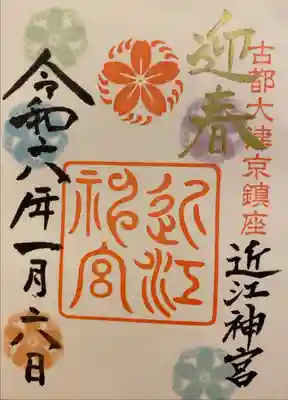 迎春
古都大津京鎮座
近江神宮
近江神宮
令和六年一月六日